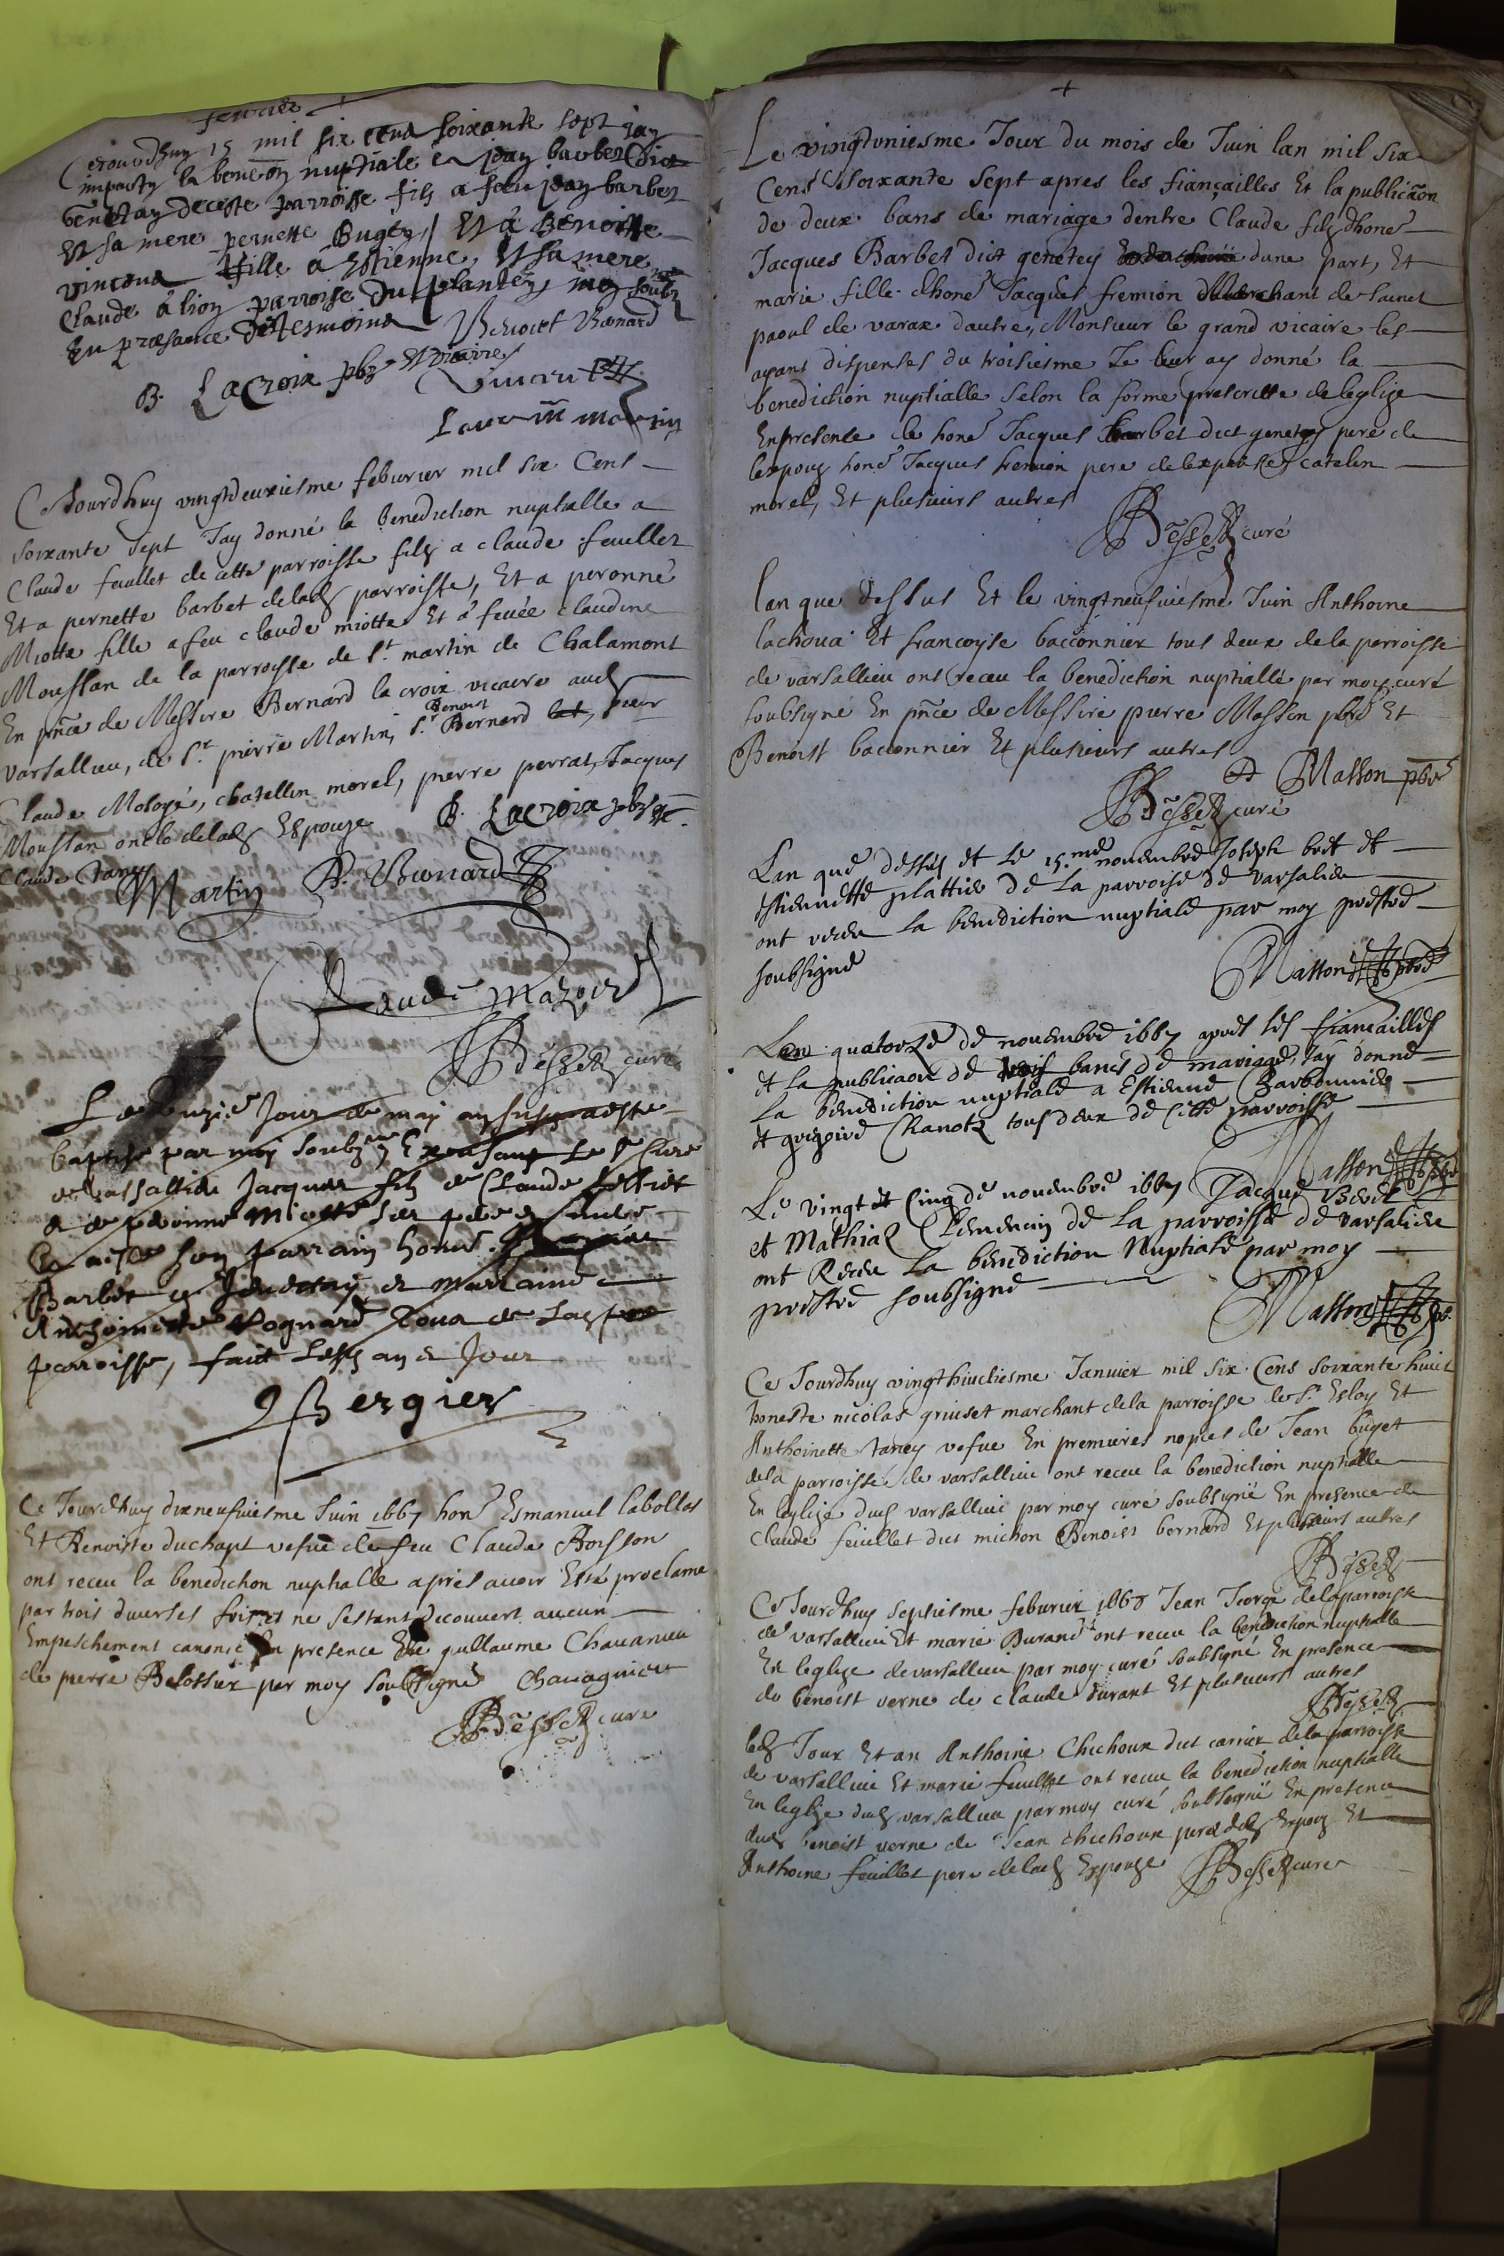 feuvrier
Cejourdhuy 15 mil six cens soixante sept jay
imparty la beneon nuptiale a jean barbet dict
Genetay de ceste parroisse fils a feu jean barbet
Et sa mere pernette Bugey, Et a Benoiste
vincent fille a Estienne, Et sa mere
Claude a lion parroisse du plantey, moy soubz
En presance des tesmoins Benoict Bernard
B. Lacroix pbr Et vicaire
Ce Jourdhuy vingtdeuxiesme feburier mil six Cens
soixante sept Jay donné la benediction nuptialle a
Claude feuillet de cette parroisse filz a claude feuillet
Et a pernette barbet delad parroisse, Et a peronne
Miotte fille a feu claude miotte Et a feuée claudine
Moussan de la parroisse de st. martin de Chalamont
En pnce de Messire Bernard la croix vicaire aud
varsallieu, de Sr. pierre Martin, Sr. Benoist Bernard
Claude Mologé, chatellin morel, pierre perrat, Jacques
Moussan oncle delad Espouze B. Lacroix pbr
Claude Taney
Martin B. Bernard
Claude
JBesset curé
Le Jour de may
baptisé par moy soubz
de Varsallieu Jacques filz de Claude feilliet
et de peronne Miotte ses pere et mere
a esté son parrain honor.
Barbet et Jenetay et marraine
Anthoinette Pognard tous de lad
parroisse, fait lesd an et Jour
Bergier
Ce Jourdhuy dixneufuiesme Juin 1667 honr. Esmanuel labollas
Et Benoiste duchapt vefue de feu Claude Poisson
ont receu la benediction nuptialle apres auoir Esté proclamé
par trois diuerses fois et ne sestant decouvert aucun
Empeschement canonic En presence de guillaume Chauanieu
de pierre Belossier par moy soubsigné Chauagnieu
JBesset curé
+
Le vingtuniesme Jour du mois de Juin lan mil six
Cens soixante Sept apres les fiançailles Et la publicaon
de deux bans de mariage dentre Claude filz dhone
Jacques Barbet dict genetey dune part, Et
marie fille dhone Jacques fremion Marchant de sainct
paoul de varax dautre, Monsieur le grand vicaire les
ayant dispenses du troisiesme Je leur ay donné la
benediction nuptialle selon la forme prescritte de leglize
En presence de hone Jacques Barbet dict genetey pere de
lespoux hone Jacques fremion pere de lespouse, catelin
morel, Et plusieurs autres
JBesset curé
Lan que dessus Et le vingtneufuiesme Juin Anthoine
lachoua Et francoyse baccónnier tous deux de la parroisse
de varsallieu ont receu la benediction nuptialle par moy curé
soubsigné En pnce de Messire pierre Masson pbre Et
Benoist bacconnier Et plusieurs autres
Masson pbre
JBesset curé
Lan que dessus et Le 15.me nouembre Joseph bret et
estiennette plattier de La parroise de varsalieu
ont receu La benediction nuptiale par moy prestre
soubsigné
Masson pbre
Le quatorze de nouembre 1667 apres Les fiancailles
et La publicaon de trois bancs de mariage, Jay donné
La benediction nuptiale a Estienne Barbonnier
et Chanotz tous deux de Cette parroisse
Masson pbre
Le vingt et Cinq de nouembre 1667 Jacque Beret
et Mathiaz Clemencin de La parroisse de varsalieu
ont Receu La benediction Nuptiale par moy
prestre soubsigné
Masson pbr.
Ce Jourdhuy vingthuictiesme Januier mil six Cens soixante huict
honeste nicolas griuset marchant dela parroisse de St. Esloy Et
Anthoinette Taney vefue En premieres nopces de Jean buget
dela parroisse de varsallieu ont receu la benediction nuptialle
En leglize dud varsallieu par moy curé soubsigné En presence de
Claude feuillet dict michon Benoist bernard Et plusieurs autres
JBesset
Ce Jourdhuy septiesme feburier 1668 Jean George dela parroisse
de varsallieu Et marie Durand ont receu la benediction nuptialle
En leglize de varsallieu par moy curé soubsigné En presence
de benoist verne de claude durant Et plusieurs autres
JBesset
led Jour Et an Anthoine Chichoux dict carrier dela parroisse
de varsallieu Et marie feuillet ont receu la benediction nuptialle
En leglize dud varsallieu par moy curé soubsigné En presence
dud benoist verne de Jean chichoux pere dud Espoux Et
Anthoine feuillet pere delad Espouze JBesset curé